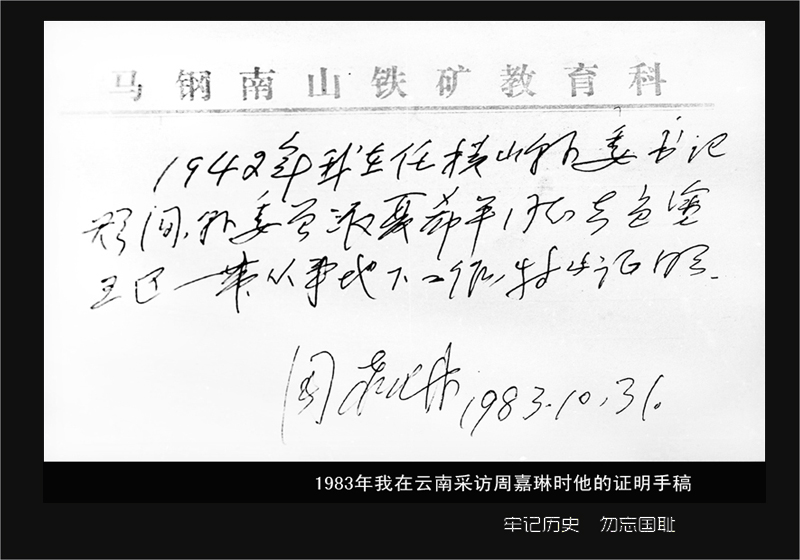 马钢南山铁矿教育科
1942年我在任横山县委书记
期间，县委曾派夏希平同志去当塗
五区一带从事地下工作，特此证明.
周嘉琳 1983.10.31.
1983年我在云南采访周嘉琳时他的证明手稿
牢记历史 勿忘国耻